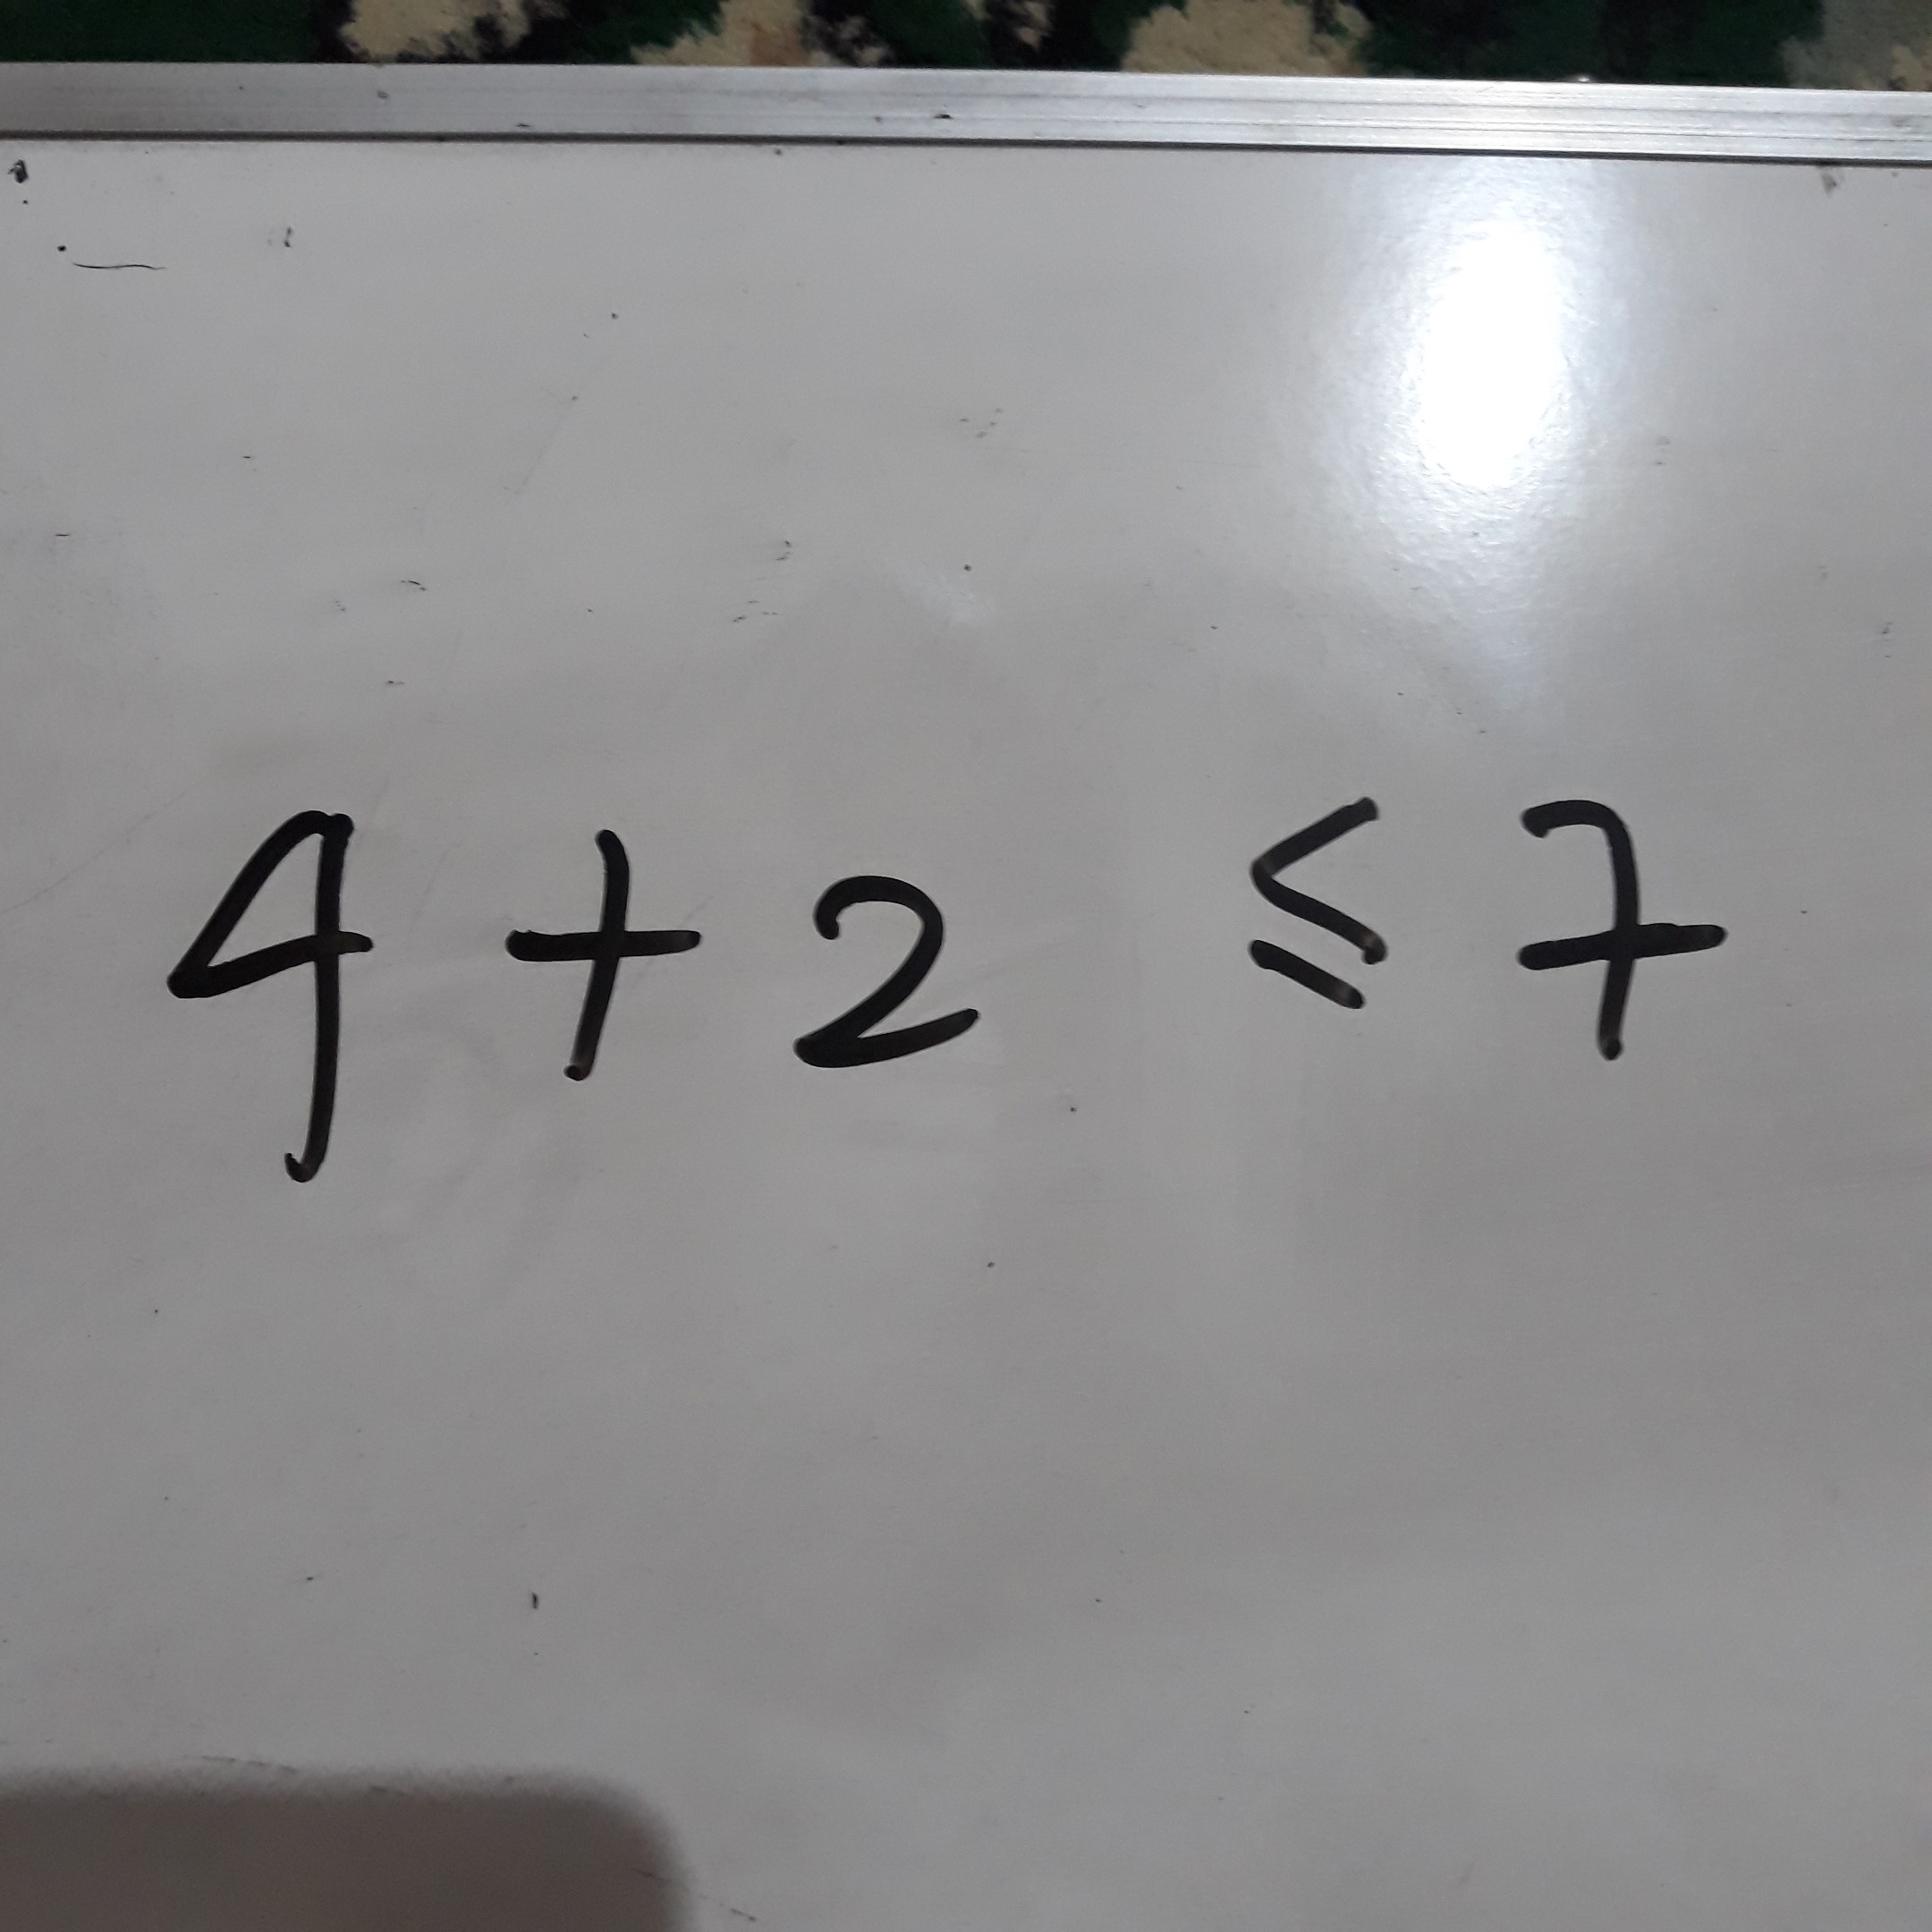 4 + 2 ≤ 7